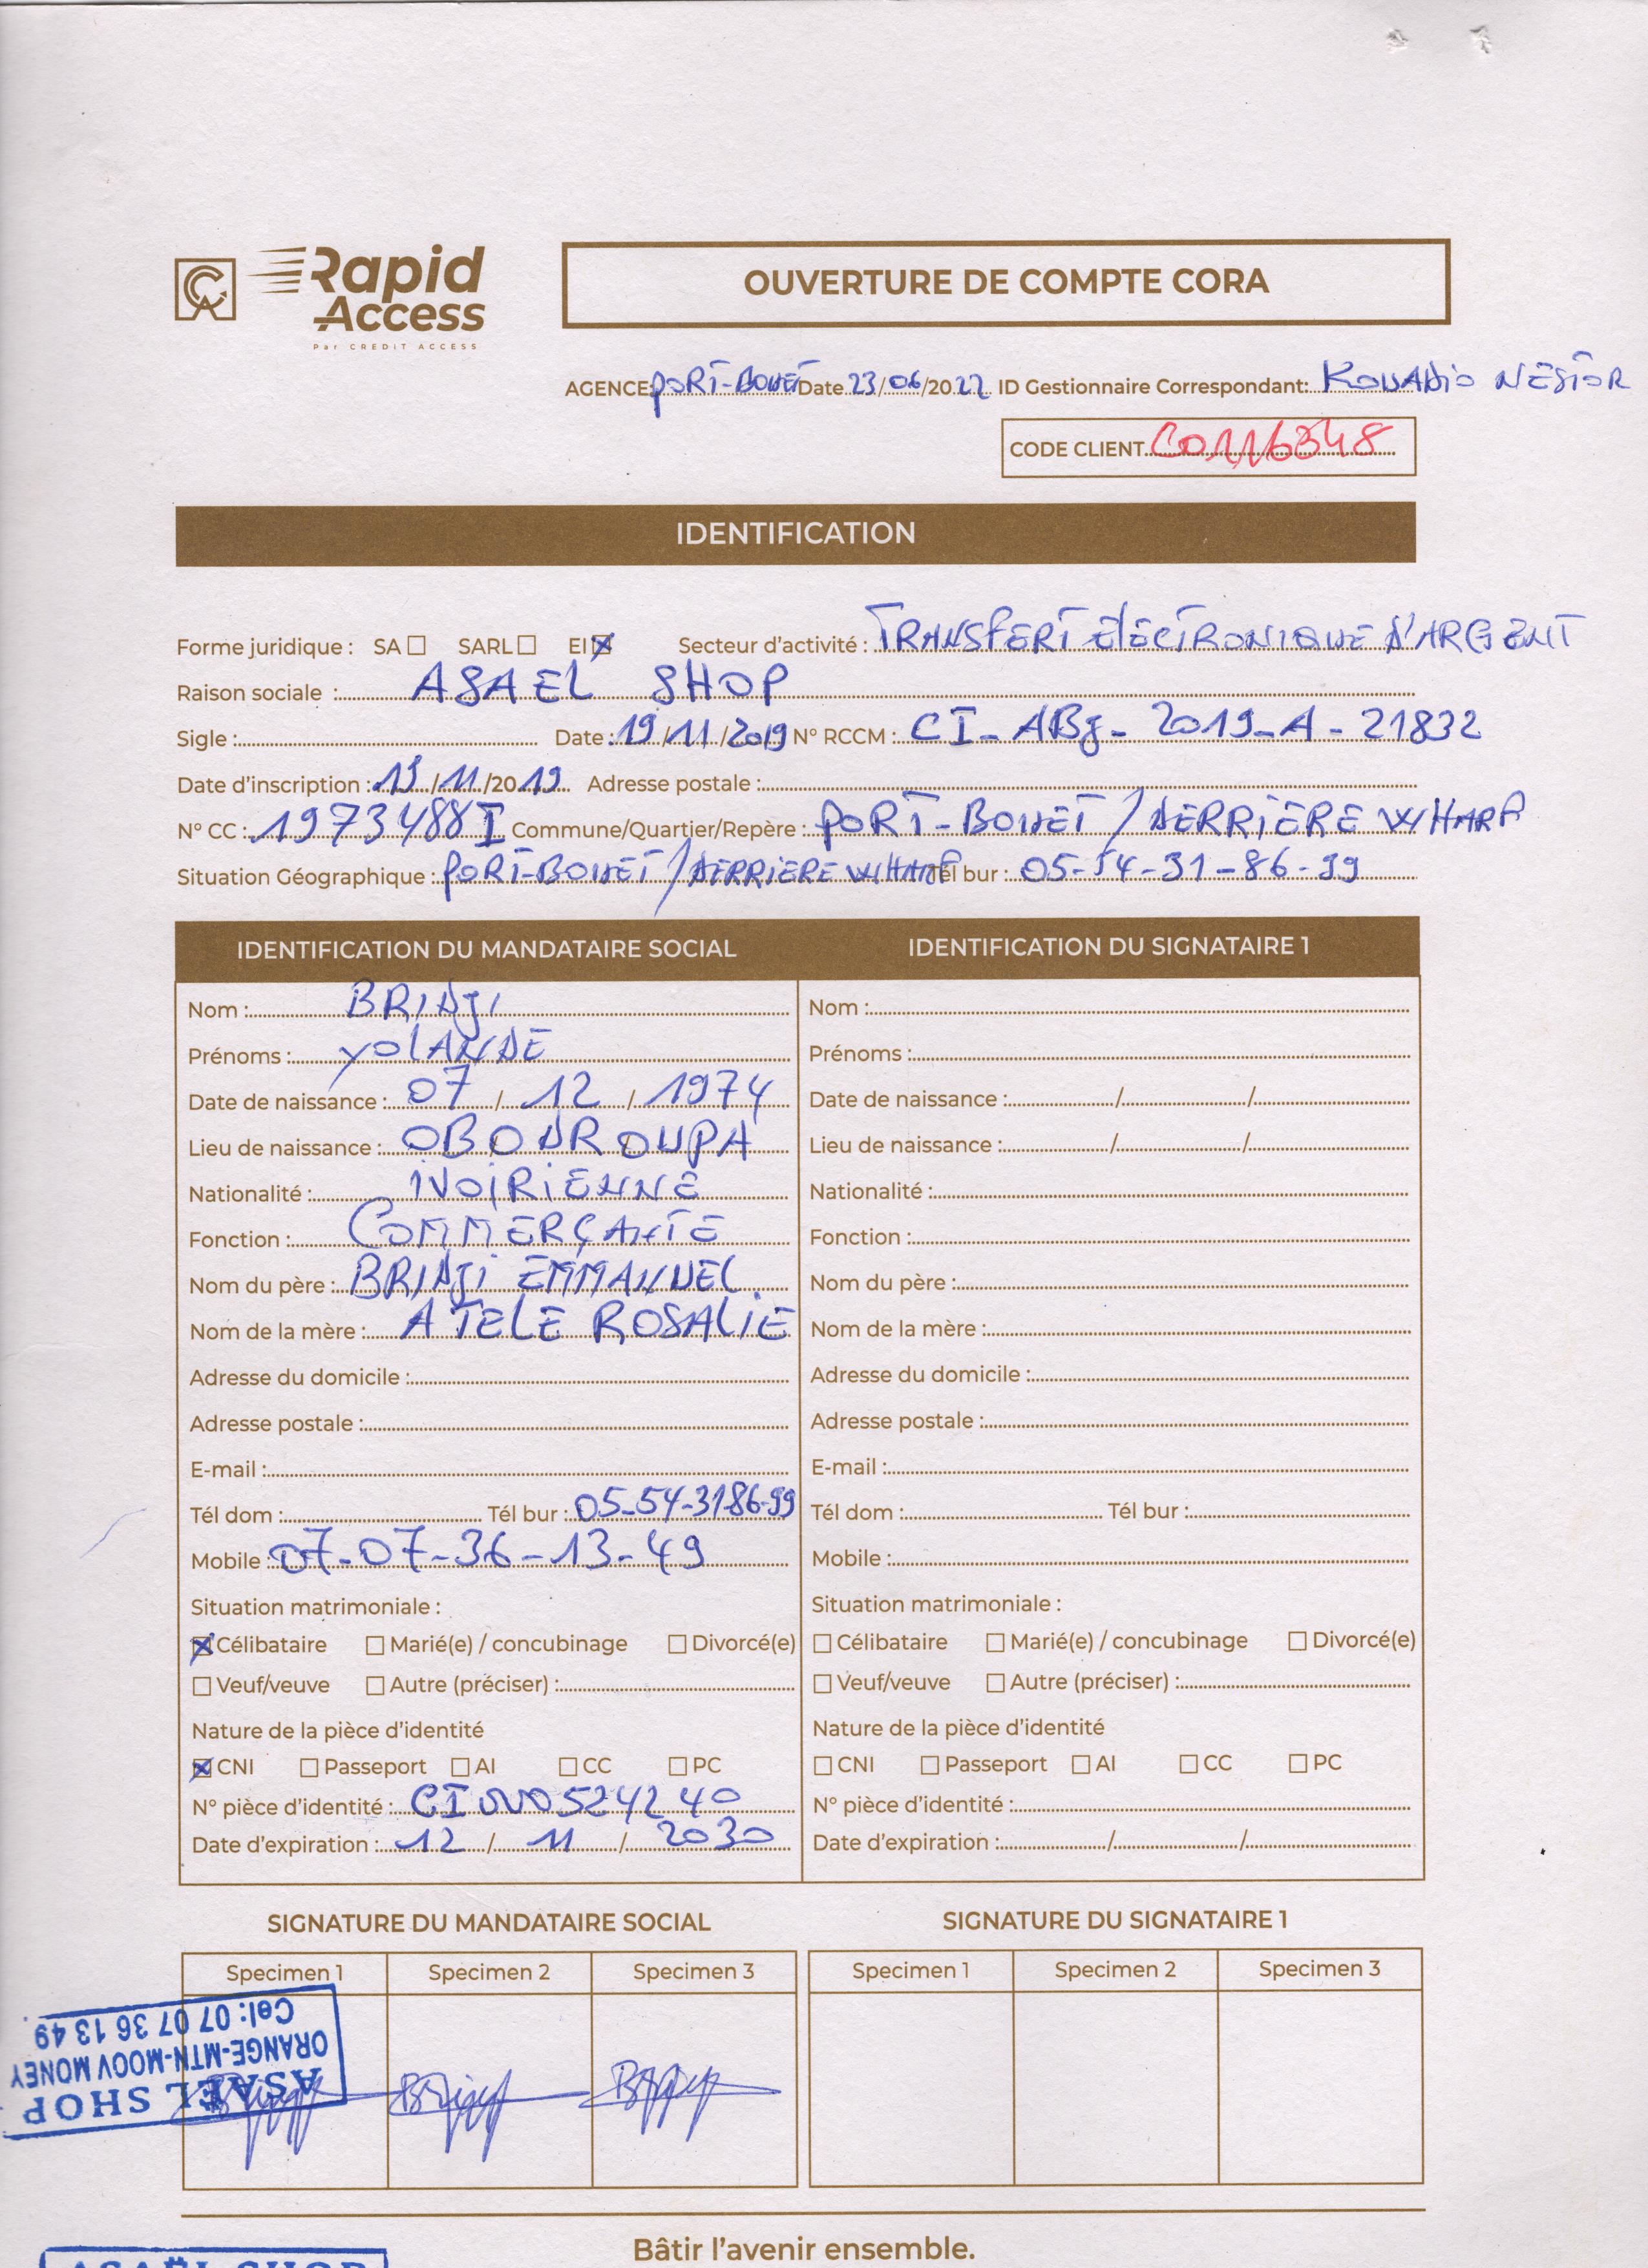 CA Rapid Access
Par CREDIT ACCESS
OUVERTURE DE COMPTE CORA
AGENCE: PORT-BOUET Date 23/06/2022 ID Gestionnaire Correspondant: KOUADIO NESTOR
CODE CLIENT C0116348
IDENTIFICATION
Forme juridique : SA ☐ SARL ☐ EI ☒ Secteur d'activité : TRANSFERT ELECTRONIQUE D'ARGENT
Raison sociale : ASAEL SHOP
Sigle : Date : 19/11/2019 N° RCCM : CI-ABJ-2019-A-21832
Date d'inscription : 19/11/2019 Adresse postale :
N° CC : 1973488 I Commune/Quartier/Repère : PORT-BOUET/DERRIERE WHARF
Situation Géographique : PORT-BOUET/DERRIERE WHARF Tél bur : 05-54-31-86-99
IDENTIFICATION DU MANDATAIRE SOCIAL
Nom : BRIDJI
Prénoms : YOLANDE
Date de naissance : 07/12/1974
Lieu de naissance : OBODROUPA
Nationalité : IVOIRIENNE
Fonction : COMMERÇANTE
Nom du père : BRIDJI EMMANUEL
Nom de la mère : ATELE ROSALIE
Adresse du domicile :
Adresse postale :
E-mail :
Tél dom : Tél bur : 05-54-31-86-99
Mobile : 07-07-36-13-49
Situation matrimoniale :
☒ Célibataire ☐ Marié(e) / concubinage ☐ Divorcé(e)
☐ Veuf/veuve ☐ Autre (préciser) :
Nature de la pièce d'identité
☒ CNI ☐ Passeport ☐ AI ☐ CC ☐ PC
N° pièce d'identité : CI000524240
Date d'expiration : 12/11/2030
IDENTIFICATION DU SIGNATAIRE 1
Nom :
Prénoms :
Date de naissance : / /
Lieu de naissance : / /
Nationalité :
Fonction :
Nom du père :
Nom de la mère :
Adresse du domicile :
Adresse postale :
E-mail :
Tél dom : Tél bur :
Mobile :
Situation matrimoniale :
☐ Célibataire ☐ Marié(e) / concubinage ☐ Divorcé(e)
☐ Veuf/veuve ☐ Autre (préciser) :
Nature de la pièce d'identité
☐ CNI ☐ Passeport ☐ AI ☐ CC ☐ PC
N° pièce d'identité :
Date d'expiration : / /
SIGNATURE DU MANDATAIRE SOCIAL
Specimen 1 Specimen 2 Specimen 3
SIGNATURE DU SIGNATAIRE 1
Specimen 1 Specimen 2 Specimen 3
ASAËL SHOP
ORANGE-MTN-MOOV MONEY
Cel: 07 07 36 13 49
Bâtir l'avenir ensemble.
ASAËL SHOP